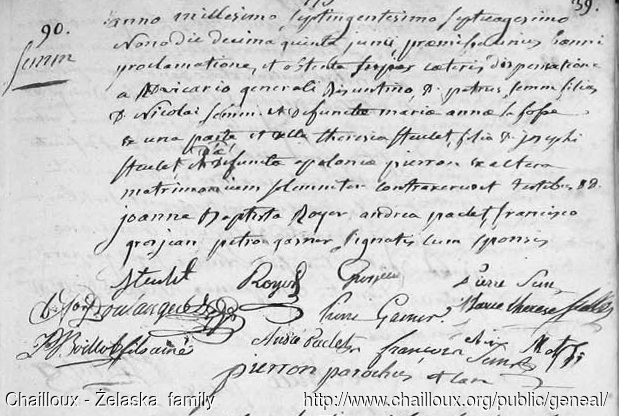 39.
90. anno millesimo septingentesimo septuagesimo
Semin nono die decima quinta junii, præmissa unius banni
proclamatione, et obtenta super cæteris dispensatione
a vicario generali Bisuntino, D. petrus Semin filius
D. Nicolai Semin et defunctæ mariæ annæ la fosse
ex una parte et dlla theresia Steulet, filia D. josephi
Steulet et defunctæ apoloniæ pierron ex altera
matrimonium solemniter contraxerunt testibus DD.
joanne Baptista Royer, andrea paclet, francisco
grosjean petro garner signatis cum sponsis
Steulet Royer Grosjean pierre Semin
Boulangeot pierre Garner Marie therese Steulet
Boillot fils ainé André Paclet françois Semin
pierron parochus
Chailloux - Żelaska family http://www.chailloux.org/public/geneal/